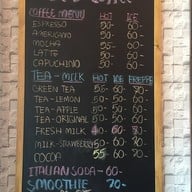 COFFEE MENU HOT ICE
ESPRESSO 50- 60-
AMERICANO 50- 60-
MOCHA 50- 60-
LATTE 50- 60-
CAPUCHINO 50- 60-
TEA - MILK HOT ICE FREPPE
GREEN TEA 50- 60- 70-
TEA-LEMON 50- 60-
TEA-APPLE 50- 60-
TEA-ORIGINAL 50- 60-
FRESH MILK 40- 60- 70-
MILK-STRAWBERRY 50- 60- 70-
COCOA 55 60- 70-
ITALIAN SODA - 60-
SMOOTHIE 70-